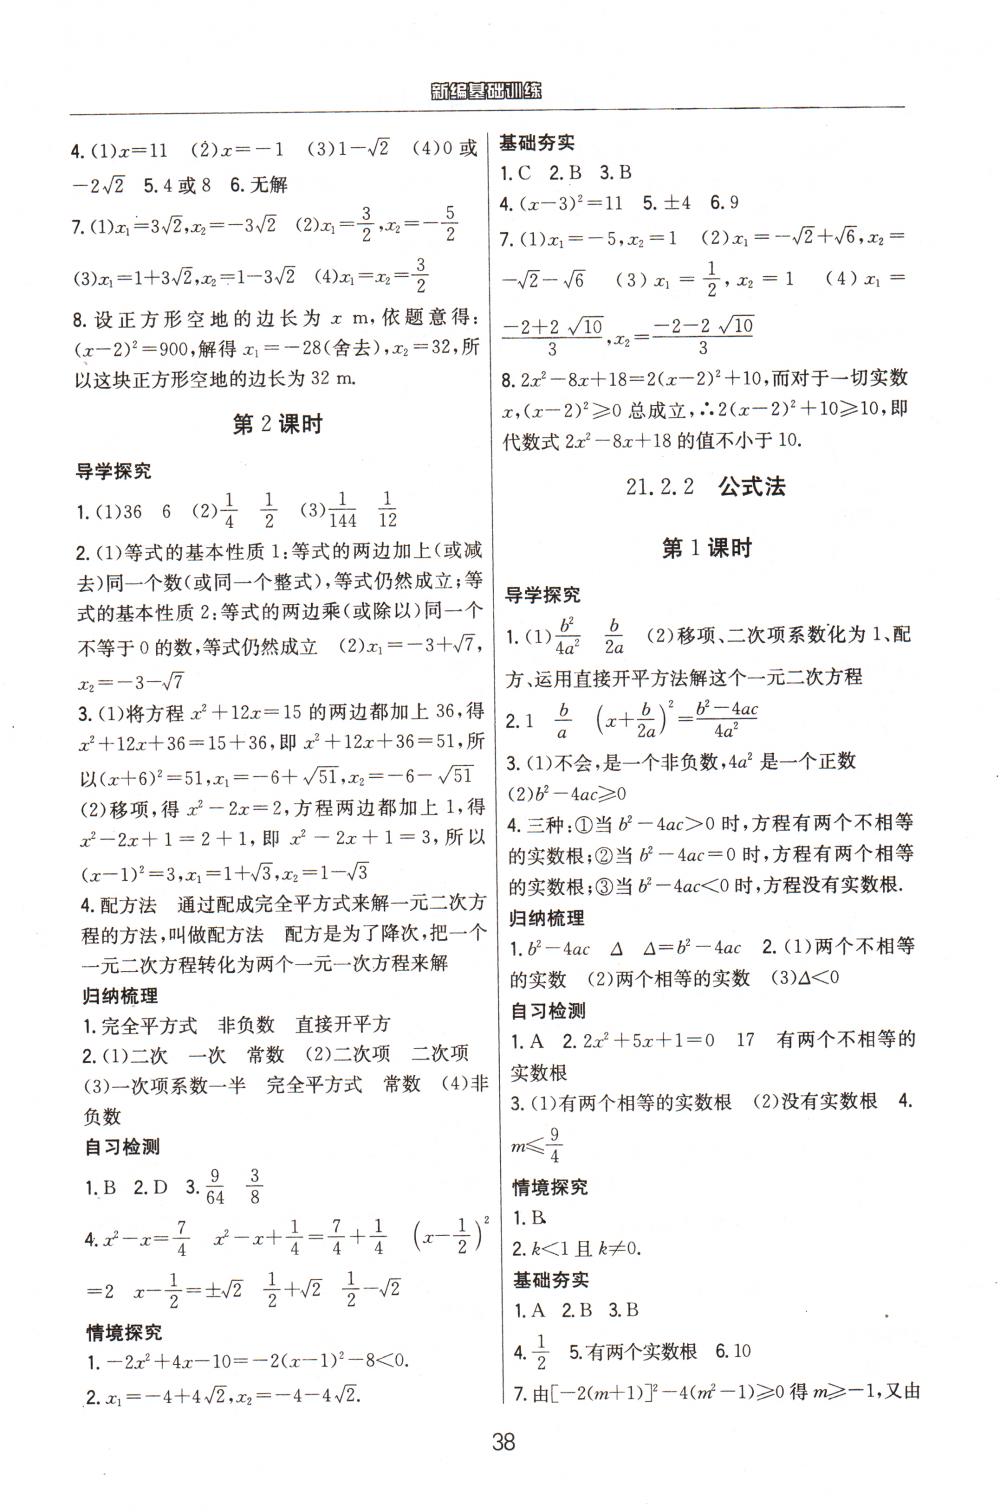 新编基础训练
4. (1)x=11 (2)x=-1 (3)1-√2 (4)0 或
-2√2 5. 4 或 8 6. 无解
7. (1)x₁=3√2,x₂=-3√2 (2)x₁=3/2,x₂=-5/2
(3)x₁=1+3√2,x₂=1-3√2 (4)x₁=x₂=3/2
8. 设正方形空地的边长为 x m,依题意得:
(x-2)²=900,解得 x₁=-28(舍去),x₂=32,所
以这块正方形空地的边长为 32 m.
第 2 课时
导学探究
1. (1)36 6 (2)1/4 1/2 (3)1/144 1/12
2. (1)等式的基本性质 1:等式的两边加上(或减
去)同一个数(或同一个整式),等式仍然成立;等
式的基本性质 2:等式的两边乘(或除以)同一个
不等于 0 的数,等式仍然成立 (2)x₁=-3+√7,
x₂=-3-√7
3. (1)将方程 x²+12x=15 的两边都加上 36,得
x²+12x+36=15+36,即 x²+12x+36=51,所
以(x+6)²=51,x₁=-6+√51,x₂=-6-√51
(2)移项,得 x²-2x=2,方程两边都加上 1,得
x²-2x+1=2+1,即 x²-2x+1=3,所以
(x-1)²=3,x₁=1+√3,x₂=1-√3
4. 配方法 通过配成完全平方式来解一元二次方
程的方法,叫做配方法 配方是为了降次,把一个
一元二次方程转化为两个一元一次方程来解
归纳梳理
1. 完全平方式 非负数 直接开平方
2. (1)二次 一次 常数 (2)二次项 二次项
(3)一次项系数一半 完全平方式 常数 (4)非
负数
自习检测
1. B 2. D 3. 9/64 3/8
4. x²-x=7/4 x²-x+1/4=7/4+1/4 (x-1/2)²
=2 x-1/2=±√2 1/2+√2 1/2-√2
情境探究
1. -2x²+4x-10=-2(x-1)²-8<0.
2. x₁=-4+4√2,x₂=-4-4√2.
基础夯实
1. C 2. B 3. B
4. (x-3)²=11 5. ±4 6. 9
7. (1)x₁=-5,x₂=1 (2)x₁=-√2+√6,x₂=
-√2-√6 (3)x₁=1/2,x₂=1 (4)x₁=
(-2+2√10)/3,x₂=(-2-2√10)/3
8. 2x²-8x+18=2(x-2)²+10,而对于一切实数
x,(x-2)²≥0 总成立,∴2(x-2)²+10≥10,即
代数式 2x²-8x+18 的值不小于 10.
21.2.2 公式法
第 1 课时
导学探究
1. (1)b²/4a² b/2a (2)移项、二次项系数化为 1、配
方、运用直接开平方法解这个一元二次方程
2. 1 b/a (x+b/2a)²=(b²-4ac)/4a²
3. (1)不会,是一个非负数,4a² 是一个正数
(2)b²-4ac≥0
4. 三种:①当 b²-4ac>0 时,方程有两个不相等
的实数根;②当 b²-4ac=0 时,方程有两个相等
的实数根;③当 b²-4ac<0 时,方程没有实数根.
归纳梳理
1. b²-4ac Δ Δ=b²-4ac 2. (1)两个不相等
的实数 (2)两个相等的实数 (3)Δ<0
自习检测
1. A 2. 2x²+5x+1=0 17 有两个不相等的
实数根
3. (1)有两个相等的实数根 (2)没有实数根 4.
m≤9/4
情境探究
1. B
2. k<1 且 k≠0.
基础夯实
1. A 2. B 3. B
4. 1/2 5. 有两个实数根 6. 10
7. 由[-2(m+1)]²-4(m²-1)≥0 得 m≥-1,又由
38